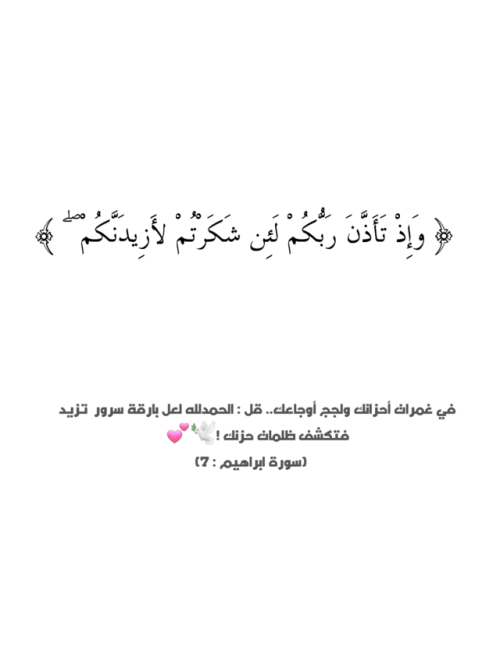 ﴿ وَإِذْ تَأَذَّنَ رَبُّكُمْ لَئِن شَكَرْتُمْ لأَزِيدَنَّكُمْ ۖ ﴾
في غمرات أحزانك ولجج أوجاعك.. قل : الحمدلله لعل بارقة سرور تزيد
فتكشف ظلمات حزنك !🕊️💕
(سورة ابراهيم : 7)